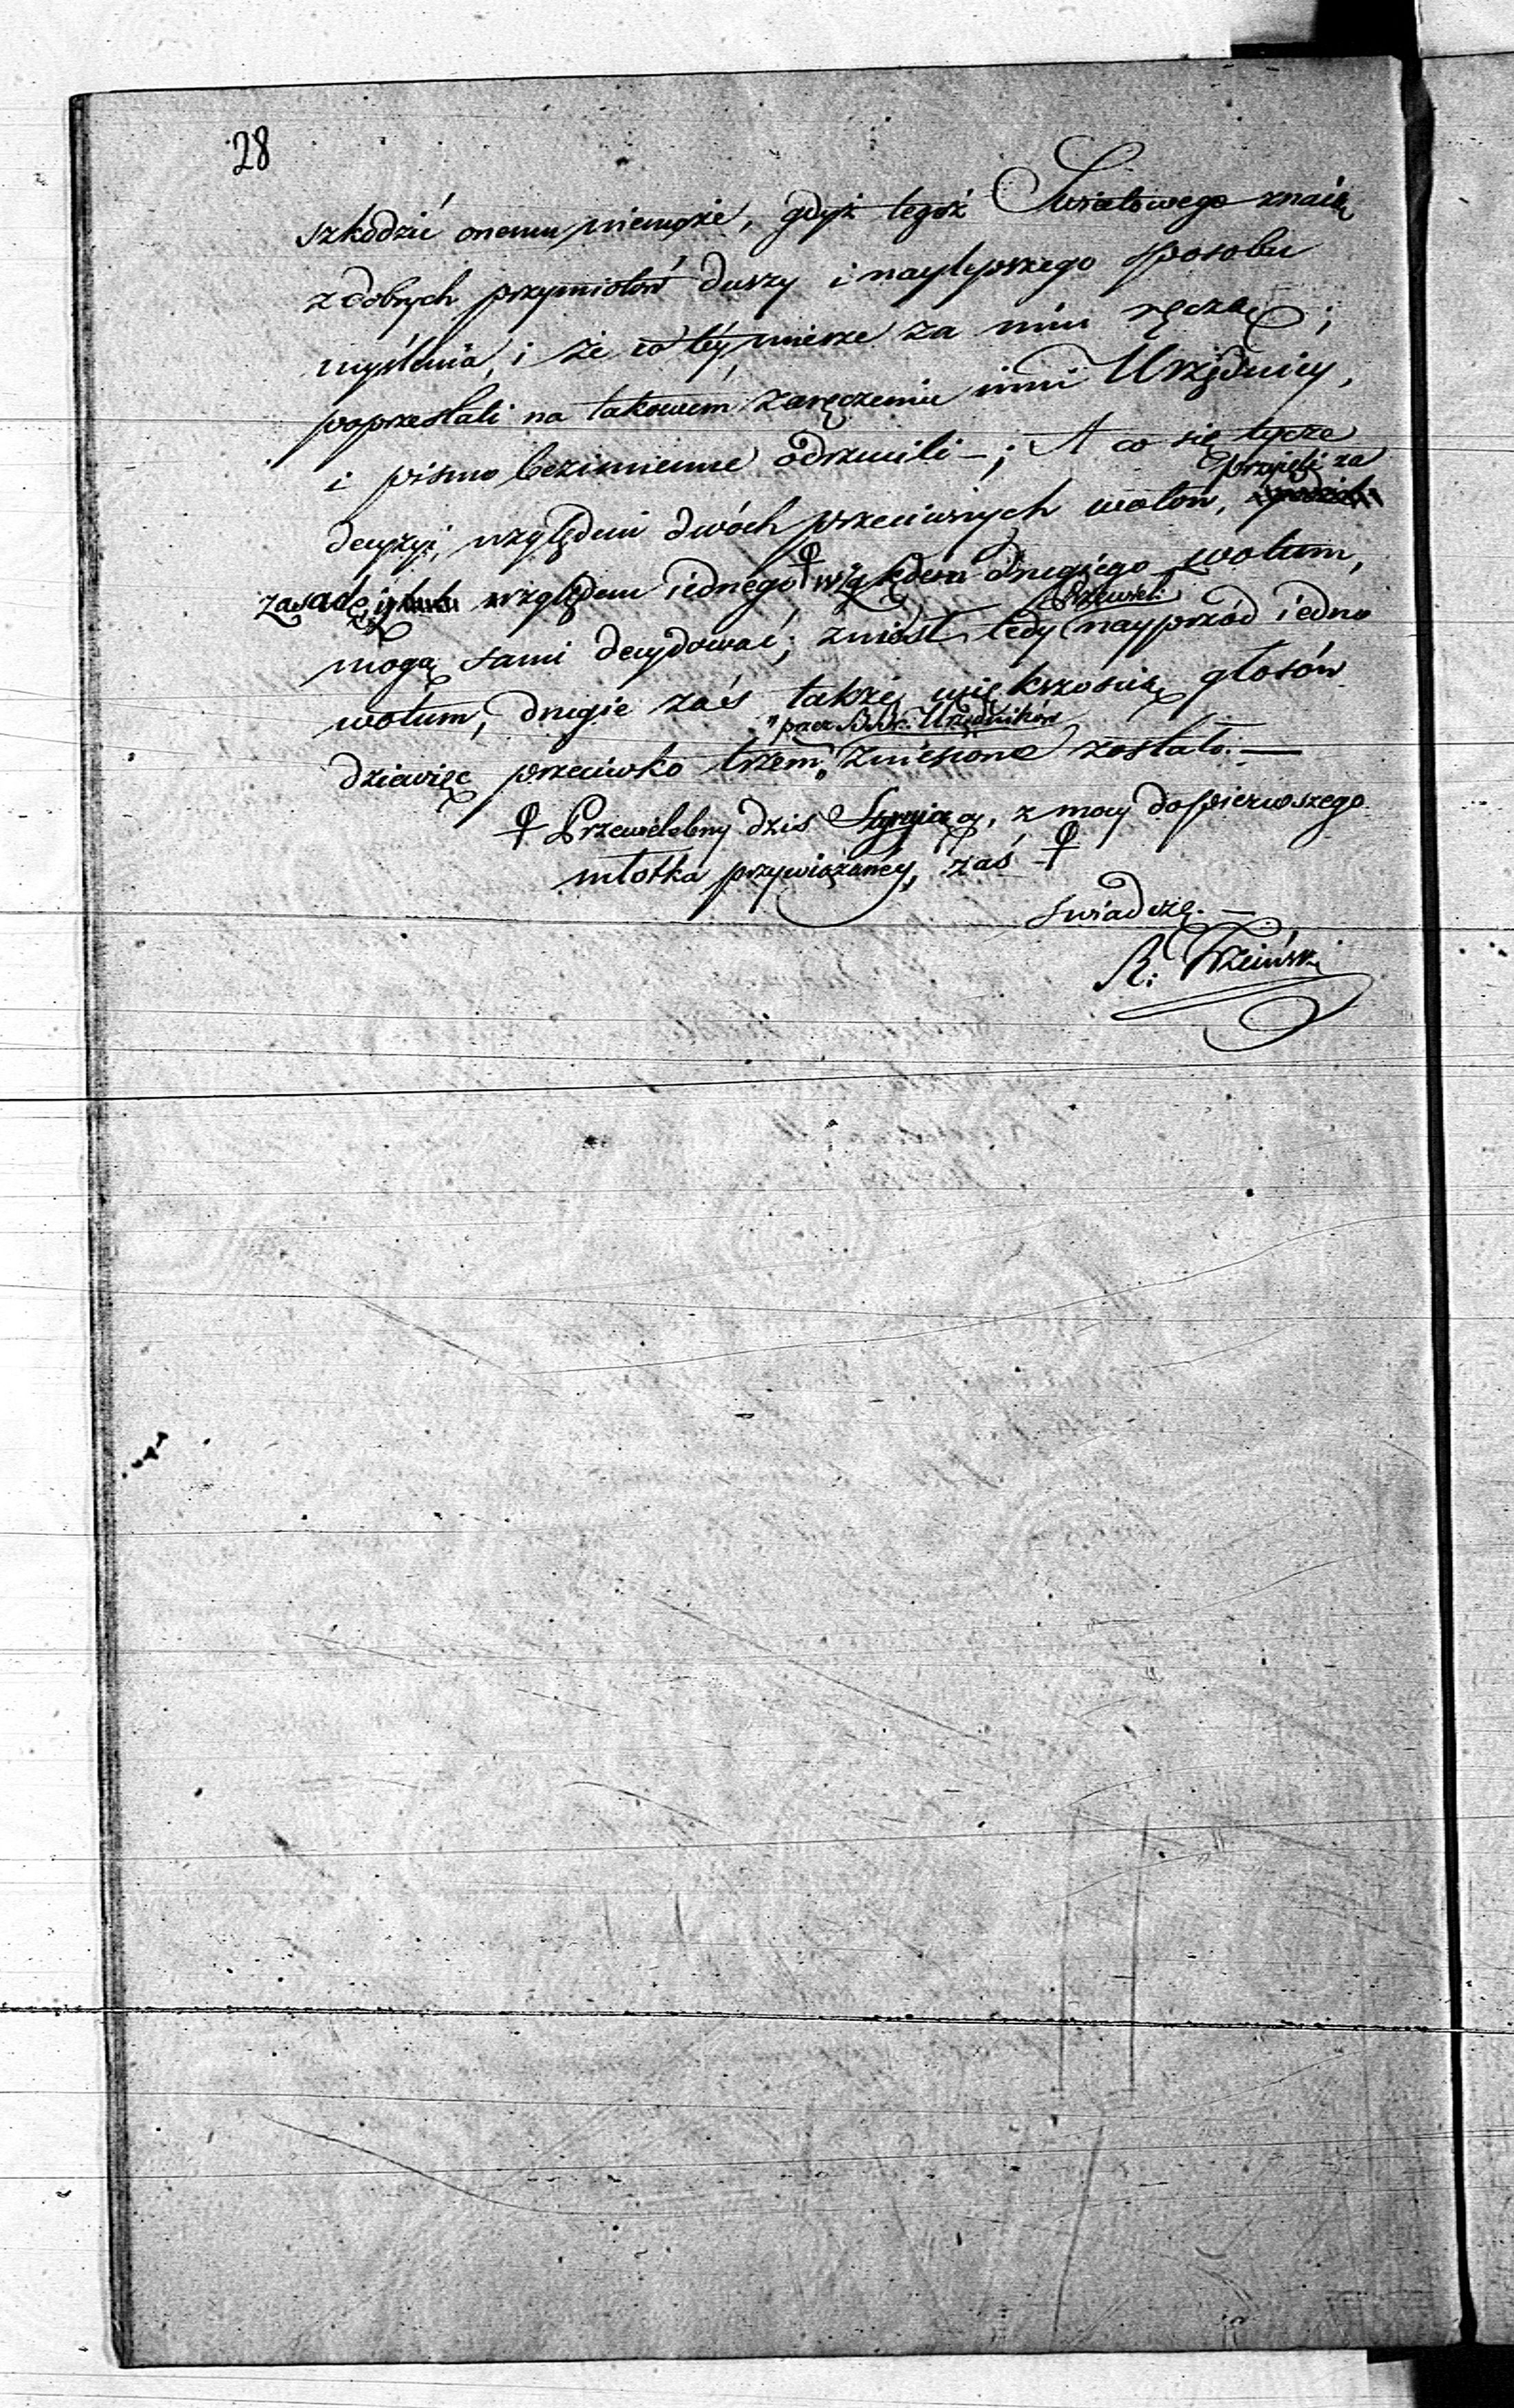 28
szkodzić onemu niemoże, gdyż tegoż Swiatowego znaią
z dobrych przymiotów duszy i naylepszego sposobu
myślenia, i że w téy mierze za nim ręczą;
poprzestali na takowem zaręczeniu inni Urzędnicy,
i pismo bezimienne odrzucili –; A co się tycze
przyięli za
decyzyi, względem dwóch przeciwnych wotów,
zasadę, iż względem iednego ♀ względem drugiego wotum,
Przewiel:
mogą sami decydować; zniosł tedy nayprzód iedno
wotum, drugie zaś także większością głosów
przez Urzędników
dziewięć przeciwko trzem, zniesione zostało. —
♀ Przewielebny dziś, z mocy do pierwszego
młotka przywiązanéy, zaś ♀
Swiadczę. —